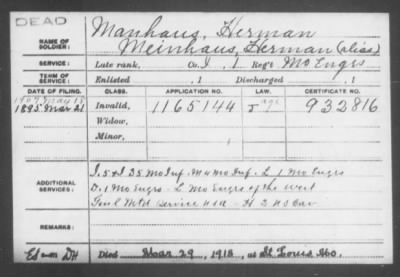 DEAD
Manhaus, Herman
NAME OF SOLDIER: Meinhaus, Herman (alias)
SERVICE: Late rank, Co. I, 1 Reg't Mo Engrs
TERM OF SERVICE: Enlisted , 1 Discharged , 1
DATE OF FILING. CLASS. APPLICATION NO. LAW. CERTIFICATE NO.
1907 May 15
1895 Mar 21 Invalid, 1165144 age 932816
Widow,
Minor,
I. 5 & I 35 Mo Inf. M 4 Mo Inf. L 1 Mo Engrs
ADDITIONAL SERVICES: D. 1 Mo Engrs - L Mo Engrs of the West
Genl Mtd Service USA - H 2 US Cav
REMARKS:
Died Mar 29, 1918, at St Louis Mo.